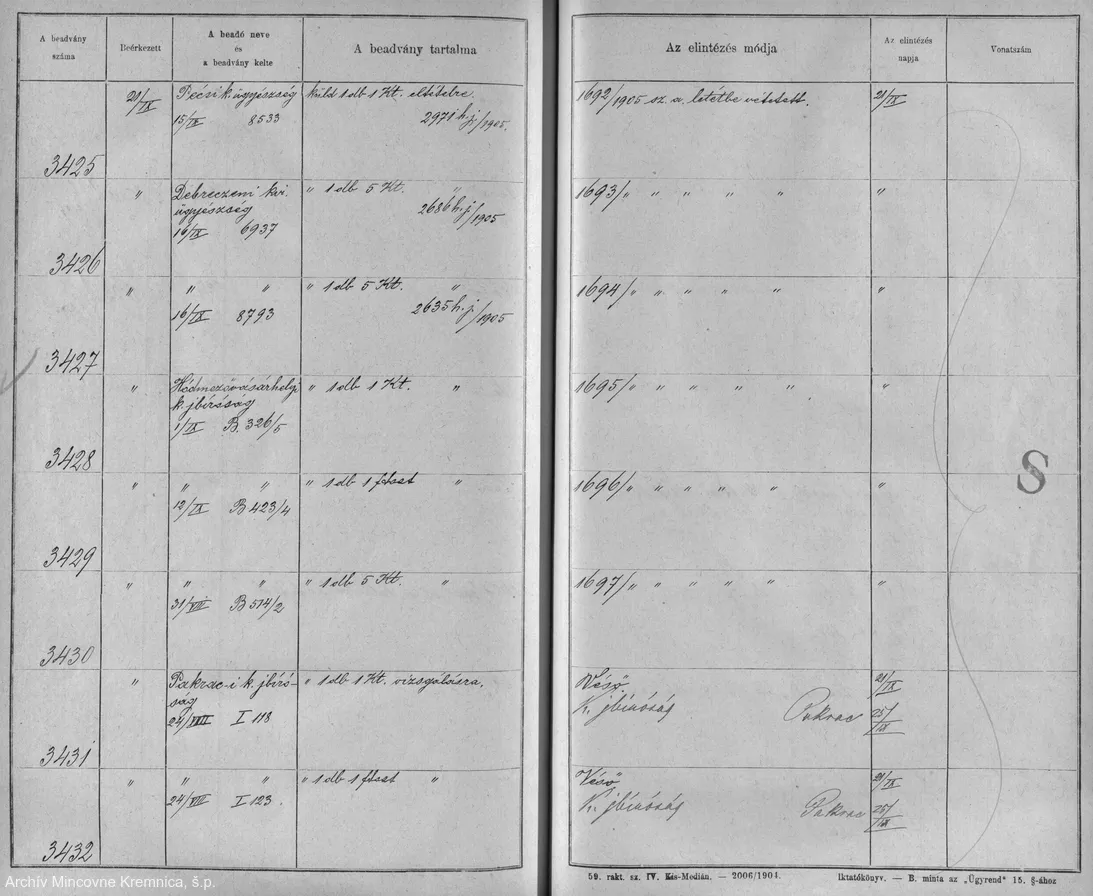 A beadvány száma
Beérkezett
A beadó neve és a beadvány kelte
A beadvány tartalma
Az elintézés módja
Az elintézés napja
Vonatszám
3425
21/IX
Pécsi k. ügyészség
15/IX 8533
küld 1 db 1 Kt. eltételre.
2971 h.j./1905.
1692/1905 sz. a. letétbe vétetett.
21/IX
3426
"
Debreczeni kir. ügyészség
16/IX 6937
" 1 db 5 Kt. "
2686 h.j./1905
1693/" " " " "
"
3427
"
" "
16/IX 8793
" 1 db 5 Kt. "
2635 h.j./1905
1694/" " " " "
"
3428
"
Hódmezővásárhelyi k. jbíróság
1/IX B. 326/5
" 1 db 1 Kt. "
1695/" " " " "
"
3429
"
" "
12/IX B 423/4
" 1 db 1 ftsst "
1696/" " " " "
"
3430
"
" "
31/VIII B 514/2
" 1 db 5 Kt. "
1697/" " " " "
"
3431
"
Pakrac-i k. jbíró-
ság
24/VIII I 118
" 1 db 1 Kt. vizsgálásra,
Véső.
K. jbíróság Pakrac
21/IX
25/IX
3432
"
" "
24/VIII I 123.
" 1 db 1 ftsst "
Véső
K. jbíróság Pakrac
21/IX
25/IX
S
59. rakt. sz. IV. Kis-Medián. — 2006/1904.
Iktatókönyv. — B. minta az „Ügyrend" 15. §-ához
Archív Mincovne Kremnica, š.p.